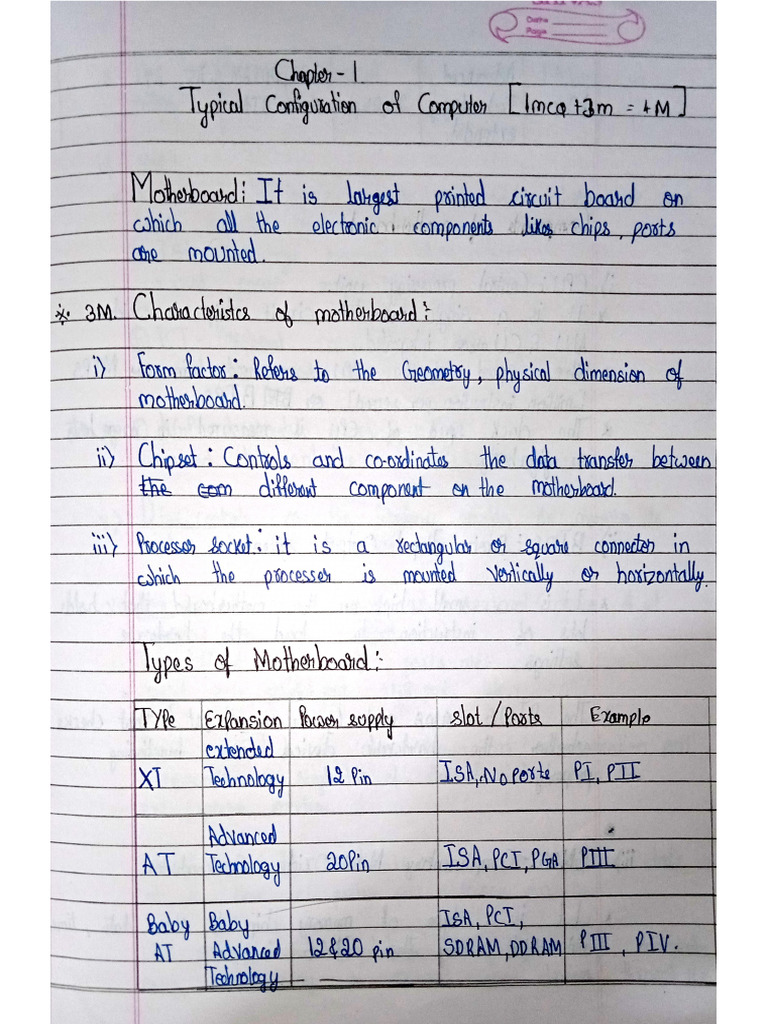 Date
Page
Chapter-1
Typical Configuration of Computer [1mcq+3m = 4M]
Motherboard: It is largest printed circuit board on
which all the electronic components likes chips, ports
are mounted.
* 3M. Characteristics of motherboard:
i) Form factor: Refers to the Geometry, physical dimension of
motherboard.
ii) Chipset: Controls and co-ordinates the data transfer between
the com different component on the motherboard.
iii) Processor socket: it is a rectangular or square connector in
which the processer is mounted vertically or horizontally.
Types of Motherboard:
TYPe Expansion Power supply slot / Ports Example
XT extended Technology 12 Pin ISA, No Ports PI, PII
AT Advanced Technology 20Pin ISA, PCI, PGA PIII
Baby AT Baby Advanced Technology 12 & 20 pin ISA, PCI, SDRAM, DDRAM PIII, PIV.